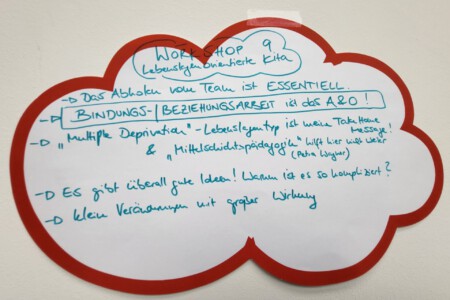 WORKSHOP 9
Lebenslagenorientierte Kita
→ Das Abholen vom Team ist ESSENTIELL.
→ BINDUNGS-/BEZIEHUNGSARBEIT ist das A&O!
→ „Multiple Deprivation"-Lebenslagentyp ist mein Take Home
Message!
& „Mittelschichtspädagogik" hilft hier nicht weiter
(Petra Wagner)
→ Es gibt überall gute Ideen! Warum ist es so kompliziert?
→ klein Veränderungen mit großer Wirkung